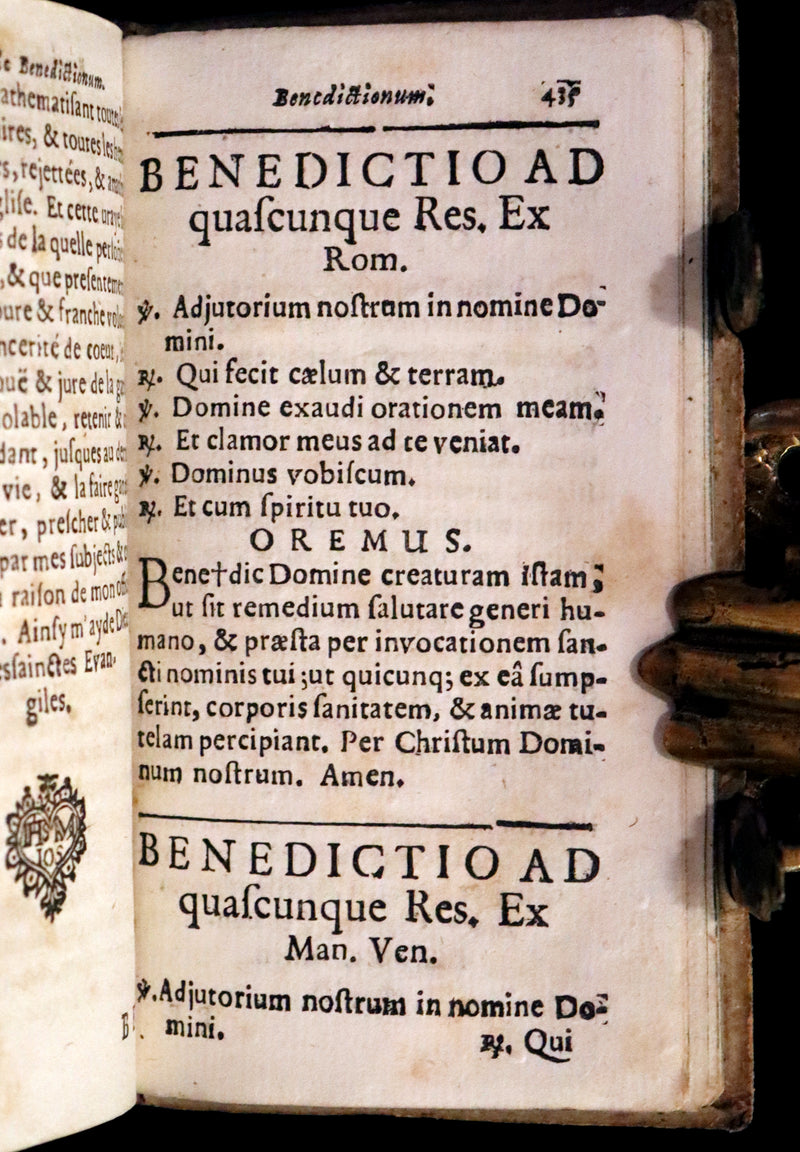 Benedictionum.
athematisant
ires, & toutes les
rejettées, &
glise. Et cette
de la quelle
& que
& franche
de coeur,
& jure de la
olable, retenir &
dant, jusques au
vie, & la faire
er, prescher &
par mes subjects &
raison de mon
Ainsy m'ayde
Evan-
giles.
Benedictionum. 435
BENEDICTIO AD
quaſcunque Res. Ex
Rom.
℣. Adjutorium noſtrum in nomine Do-
mini.
℟. Qui fecit cælum & terram.
℣. Domine exaudi orationem meam.
℟. Et clamor meus ad te veniat.
℣. Dominus vobiſcum.
℟. Et cum ſpiritu tuo.
OREMUS.
Bene†dic Domine creaturam iſtam;
ut ſit remedium ſalutare generi hu-
mano, & præſta per invocationem ſan-
cti nominis tui ;ut quicunq; ex eâ ſump-
ſerint, corporis ſanitatem, & animæ tu-
telam percipiant. Per Chriſtum Domi-
num noſtrum. Amen.
BENEDICTIO AD
quaſcunque Res. Ex
Man. Ven.
℣. Adjutorium noſtrum in nomine Do-
mini.
℟. Qui